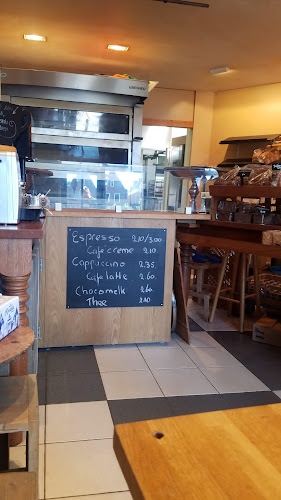 Espresso 2.10/3.00
Cafe creme 2.10
Cappuccino 2.35
Cafe latte 2.60
Chocomelk 2.60
Thee 2.10